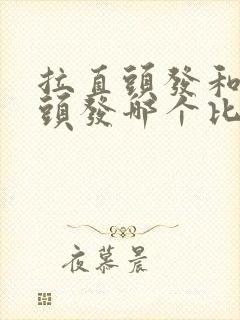 拉直頭發和
頭發哪个比
夜慕晨